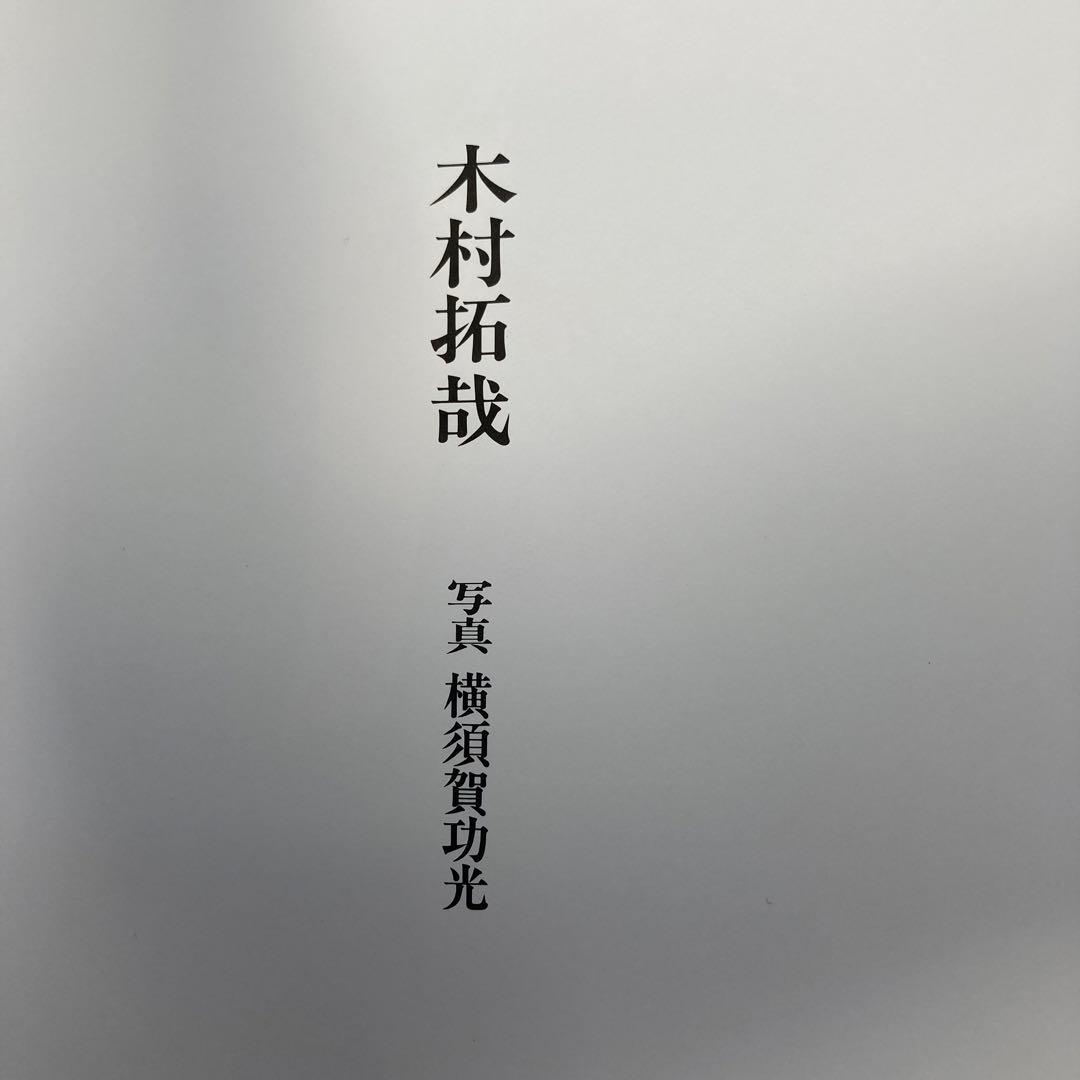 木村拓哉
写真 横須賀功光